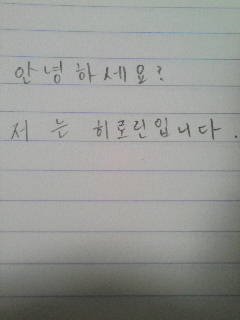 안녕하세요?
저 는 히로린입니다.